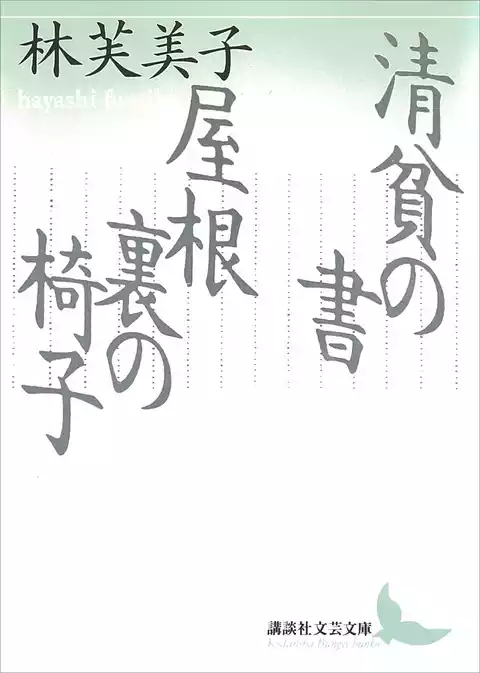 林芙美子
hayashi fumiko
清貧の
書
屋根
裏の
椅子
講談社文芸文庫
Kodansha Bungei bunko